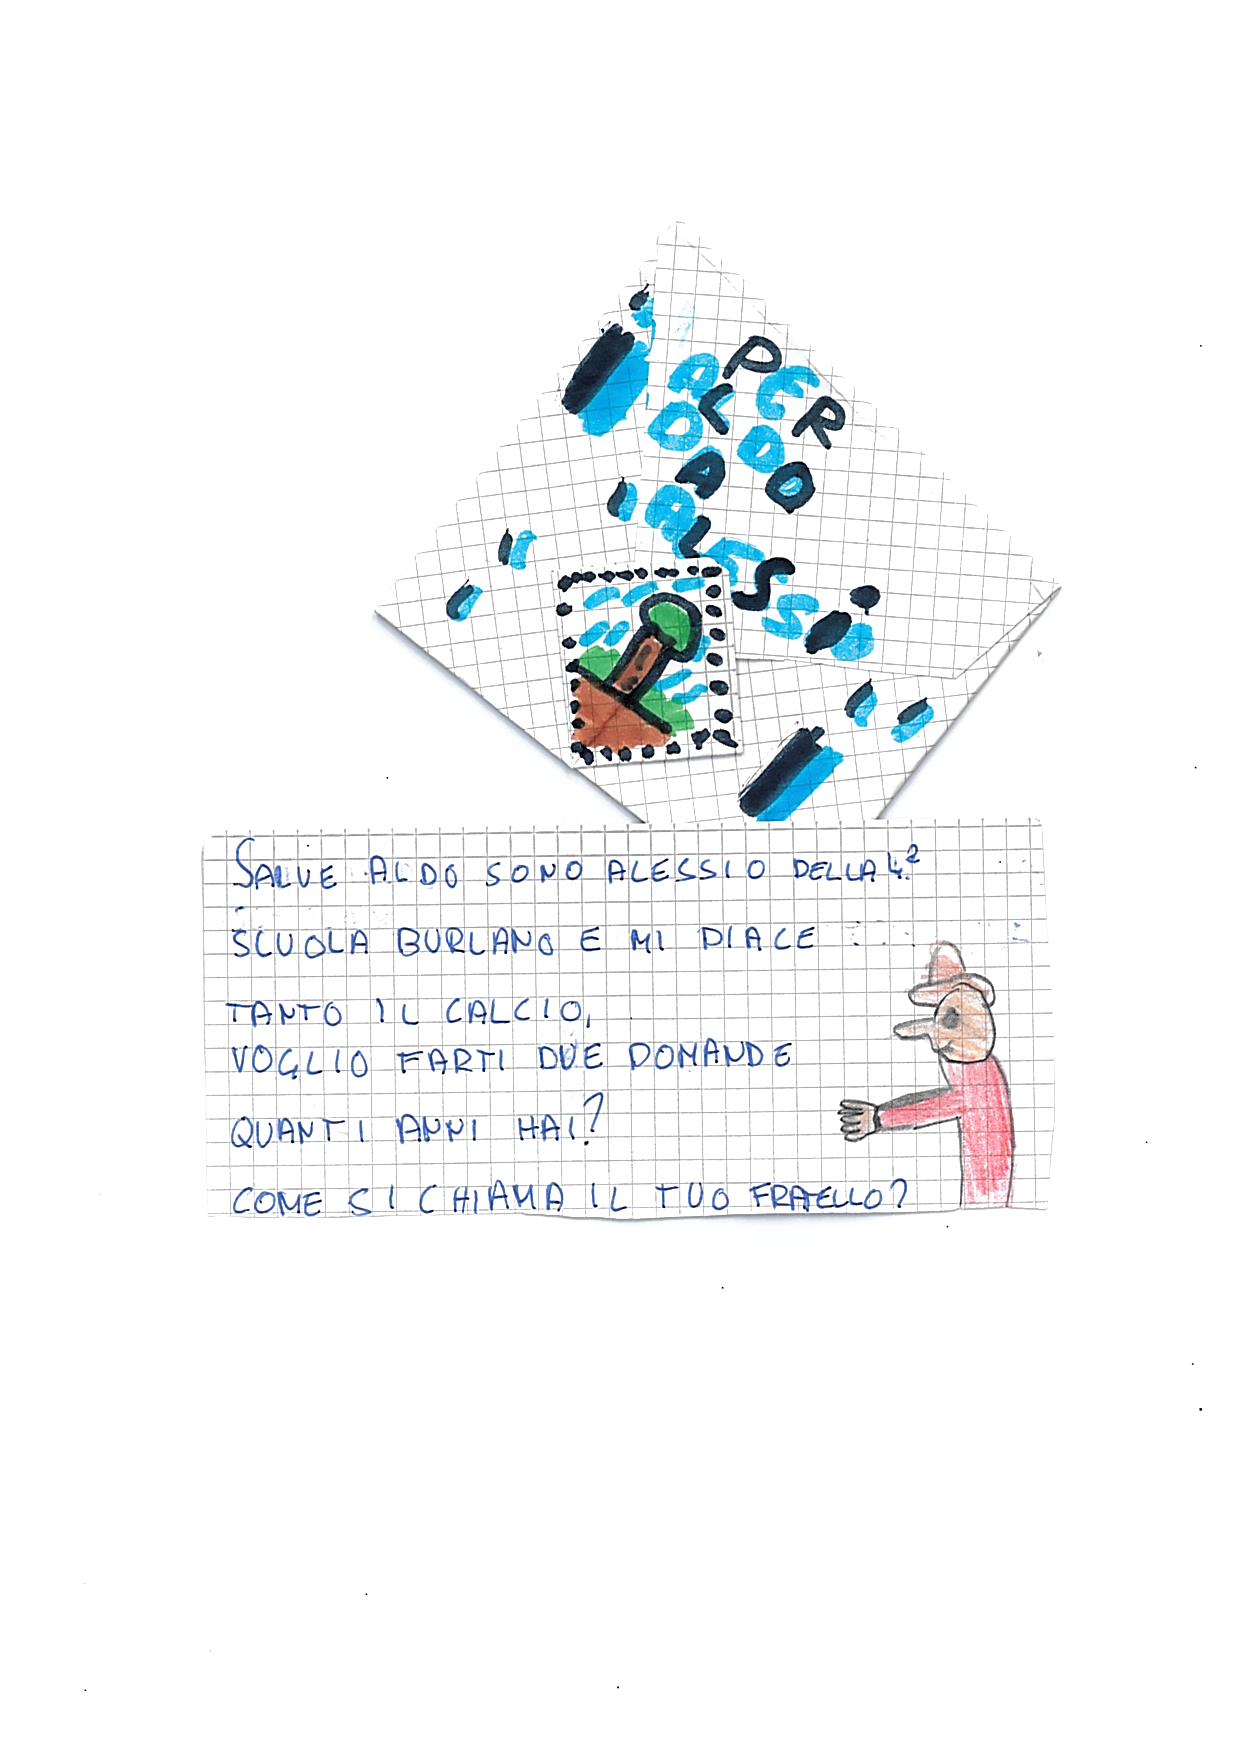 PER
ALDO
DA
ALESSiO
SALVE ALDO SONO ALESSIO DELLA 4.ª
SCUOLA BURLANO E MI PIACE
TANTO IL CALCIO,
VOGLIO FARTI DUE DOMANDE
QUANTI ANNI HAI?
COME SI CHIAMA IL TUO FRATELLO?